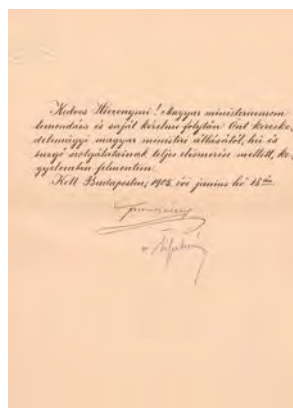 Kedves Hieronymi! Magyar ministeriumom
lemondása és saját kérelme folytán Önt keres­ke-
delemügyi magyar minister állásától, hű és
buzgó szolgálatainak teljes elismerése mellett, ke-
gyelemben felmentem.
Kelt Budapesten, 1905. évi junius hó 18án.